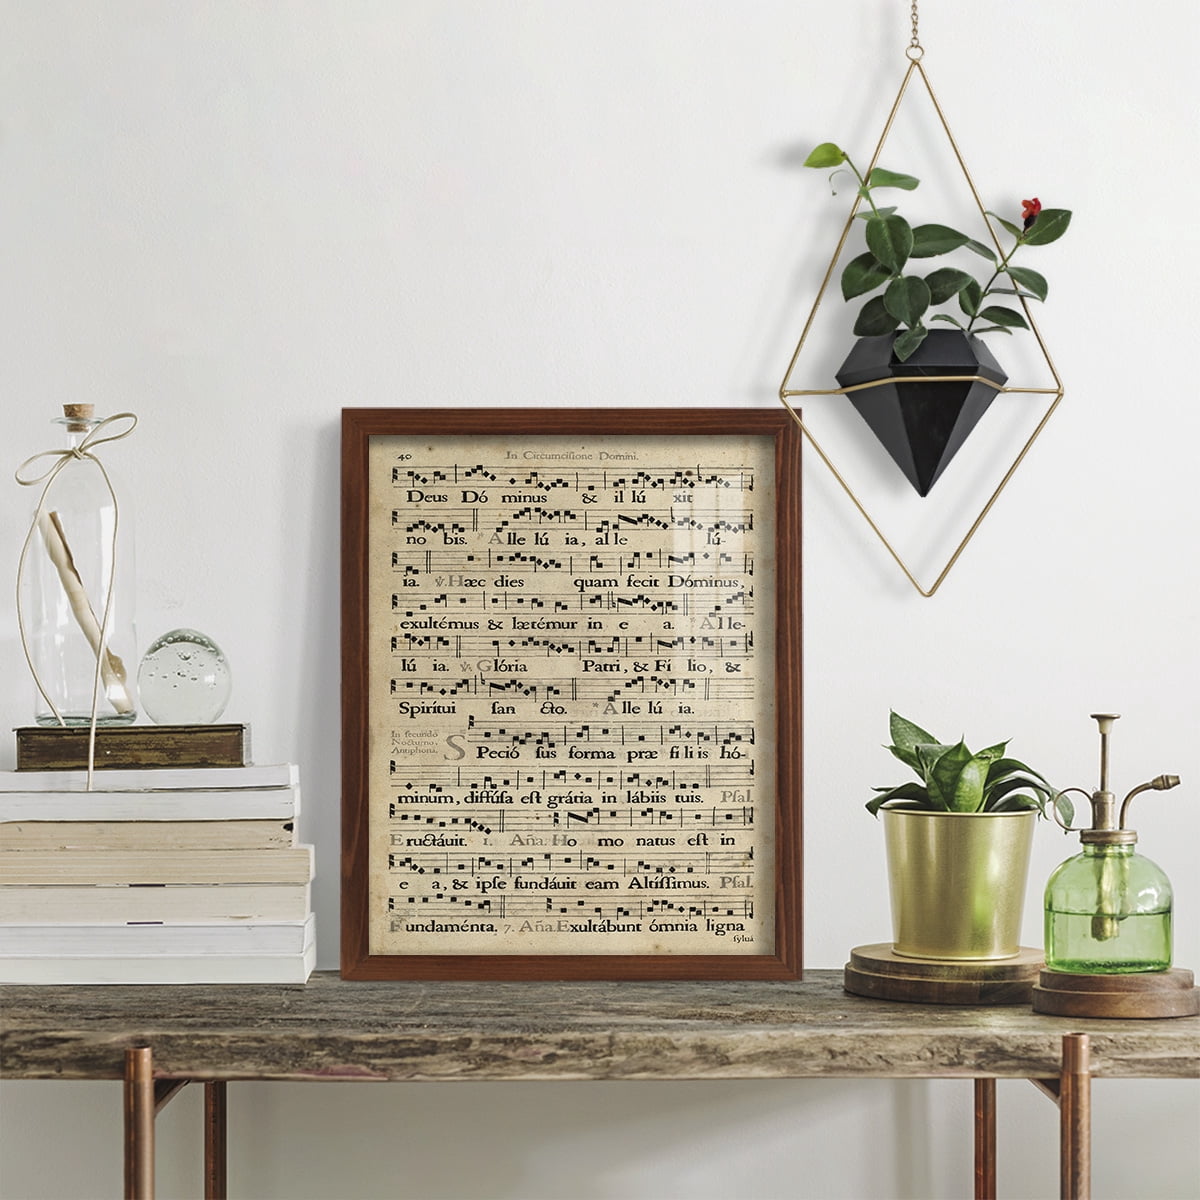 40 In Circumcisione Domini.
Deus Dó minus & il lú xit
no bis. * Alle lú ia, al le lú-
ia. ℣. Hæc dies quam fecit Dóminus,
exultémus & lætémur in e a. * Alle-
lú ia. ℣. Glória Patri, & Fí lio, &
Spirítui ſan cto. * Alle lú ia.
In ſecundo
Nocturno,
Antiphona.
SPeció ſus forma præ fi li is hó-
minum, diffúſa eſt grátia in lábiis tuis. Pſal.
Eructáuit. 1. Aña. Ho mo natus eſt in
e a, & ipſe fundáuit eam Altíſſimus. Pſal.
Fundaménta. 7. Aña. Exultábunt ómnia ligna
ſyluá